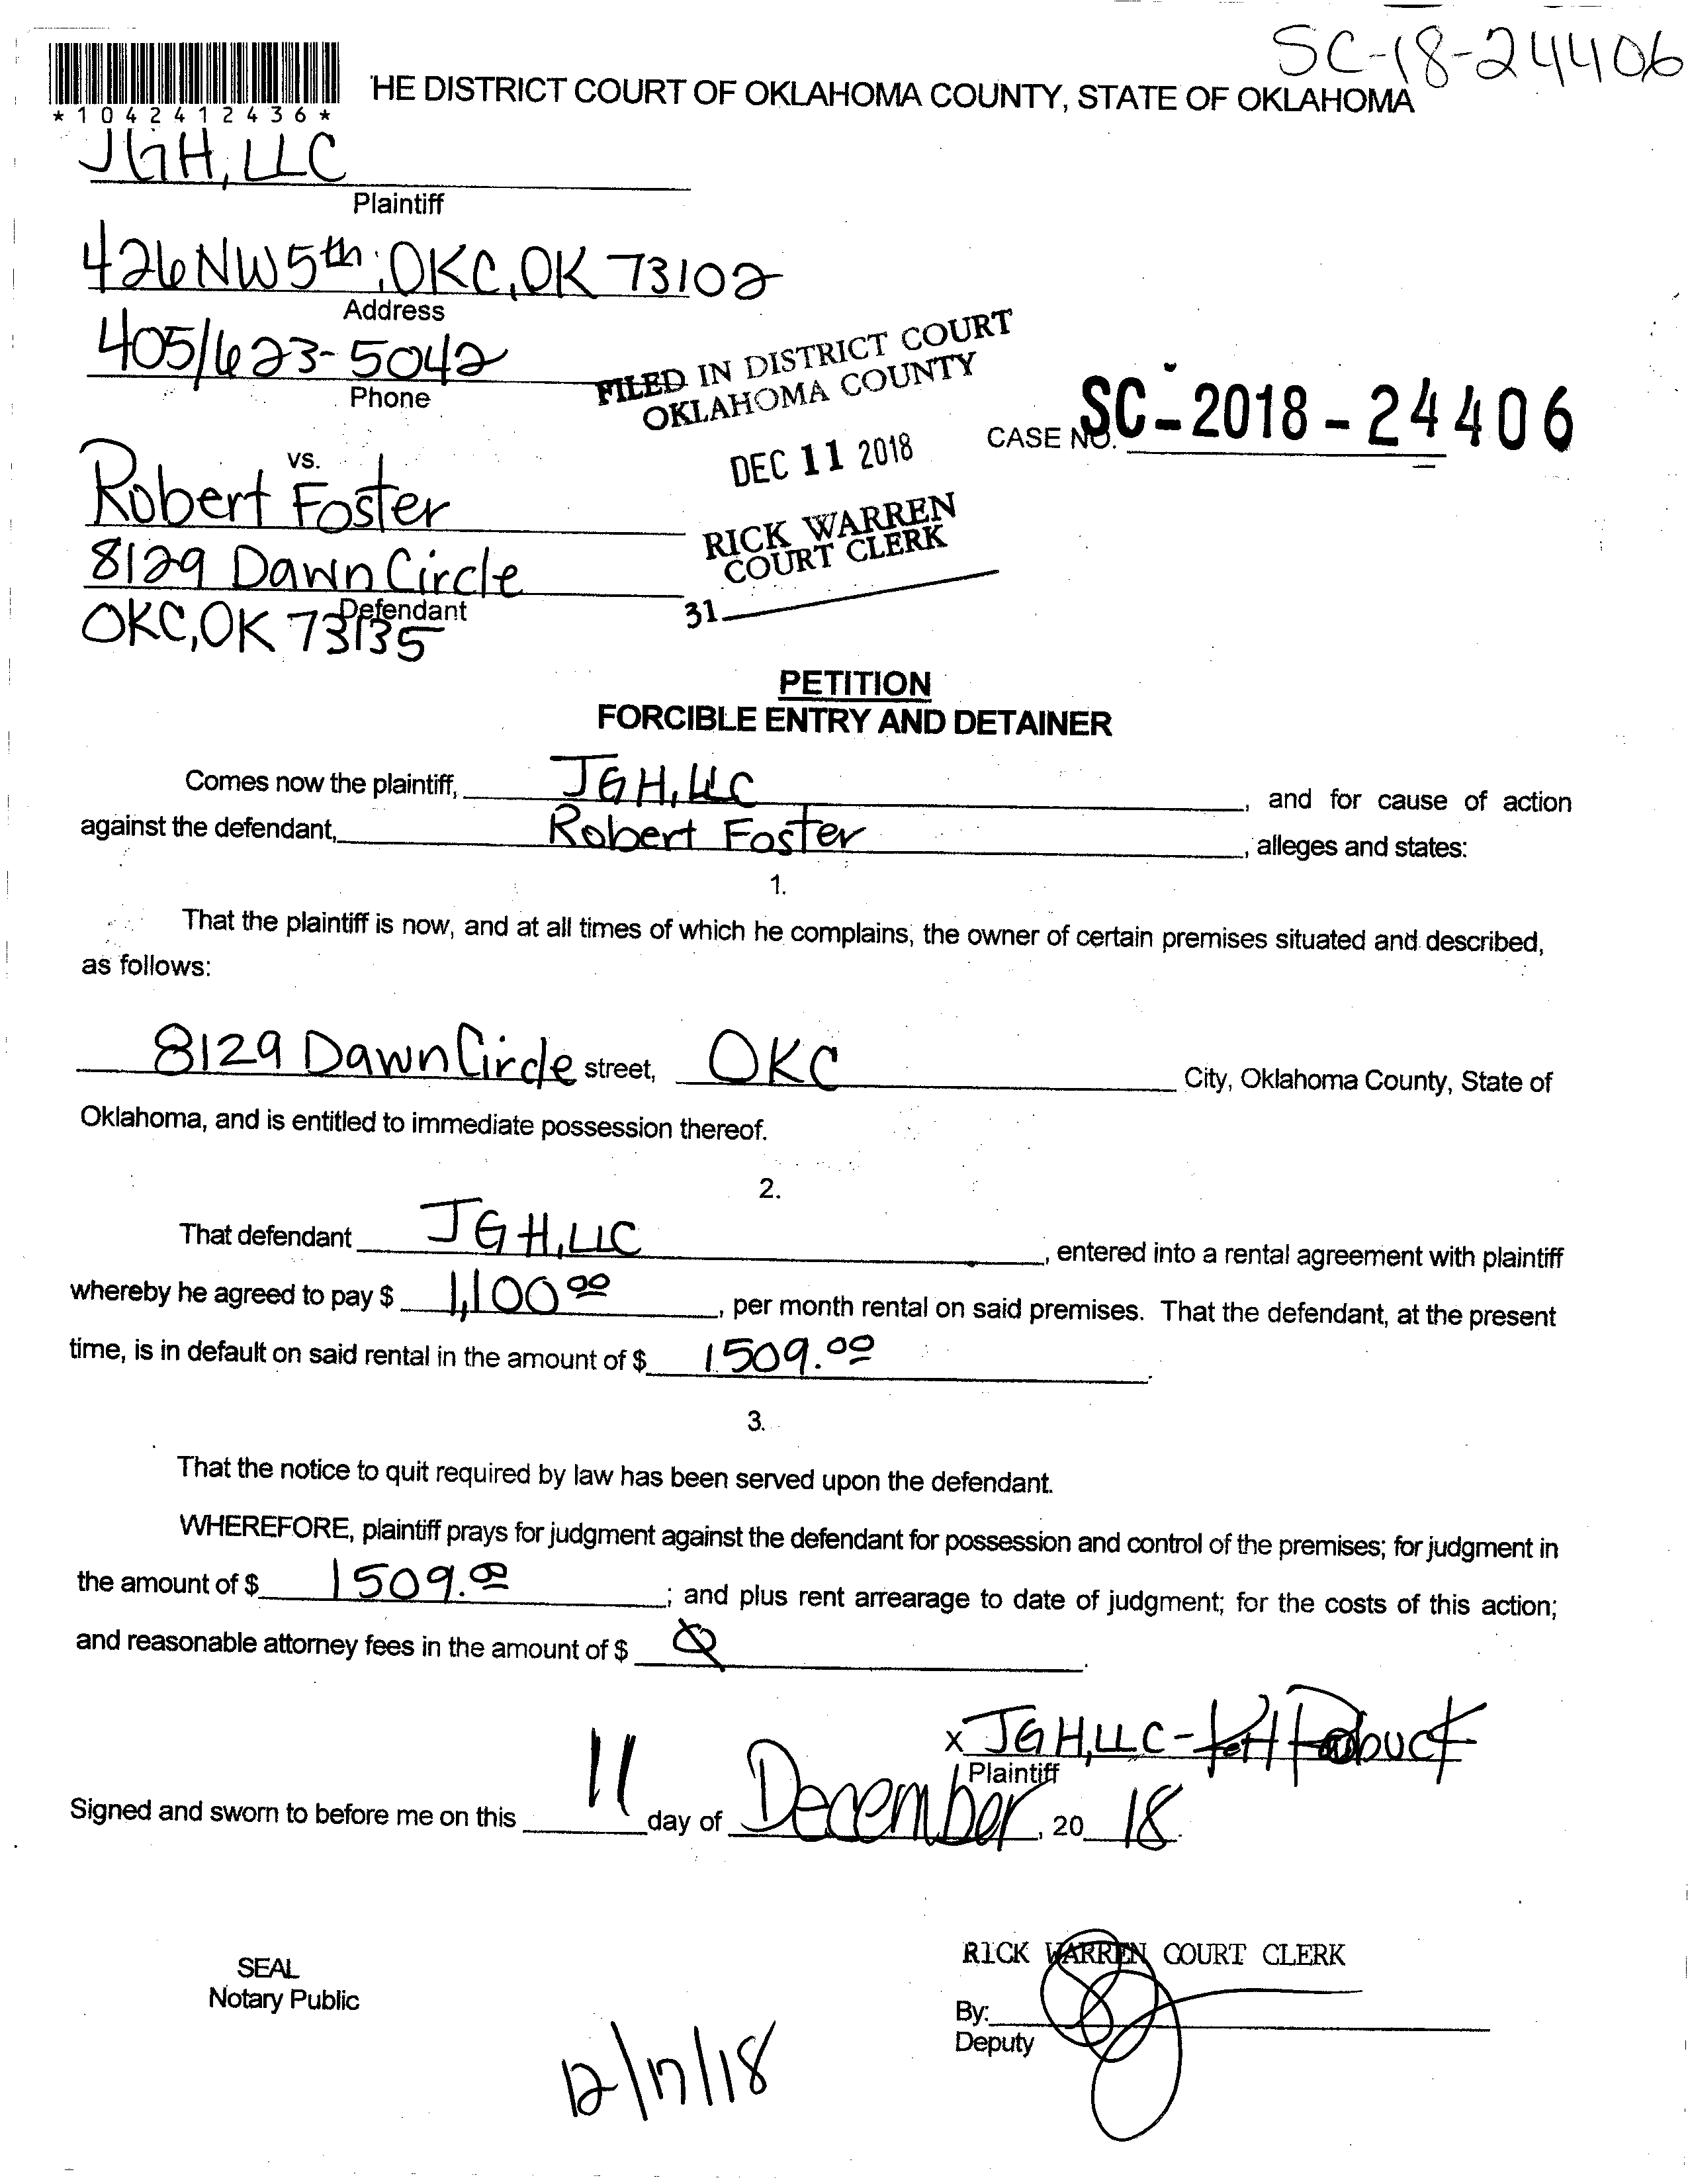 SC-18-24406
*1042412436*
HE DISTRICT COURT OF OKLAHOMA COUNTY, STATE OF OKLAHOMA
JGH, LLC
Plaintiff
426 NW 5th; OKC, OK 73102
Address
405/623-5042
Phone
FILED IN DISTRICT COURT
OKLAHOMA COUNTY
DEC 11 2018
RICK WARREN
COURT CLERK
31
CASE NO. SC-2018-24406
vs.
Robert Foster
8129 Dawn Circle
Defendant
OKC, OK 73135
PETITION
FORCIBLE ENTRY AND DETAINER
Comes now the plaintiff, JGH, LLC, and for cause of action
against the defendant, Robert Foster, alleges and states:
1.
That the plaintiff is now, and at all times of which he complains, the owner of certain premises situated and described,
as follows:
8129 Dawn Circle street, OKC City, Oklahoma County, State of
Oklahoma, and is entitled to immediate possession thereof.
2.
That defendant JGH, LLC, entered into a rental agreement with plaintiff
whereby he agreed to pay $ 1,100 00, per month rental on said premises. That the defendant, at the present
time, is in default on said rental in the amount of $ 1509.00.
3.
That the notice to quit required by law has been served upon the defendant.
WHEREFORE, plaintiff prays for judgment against the defendant for possession and control of the premises; for judgment in
the amount of $ 1509.00; and plus rent arrearage to date of judgment; for the costs of this action;
and reasonable attorney fees in the amount of $ 0.
x JGH, LLC -
Plaintiff
Signed and sworn to before me on this 11 day of December, 20 18.
SEAL
Notary Public
RICK WARREN COURT CLERK
By:
Deputy
12/17/18